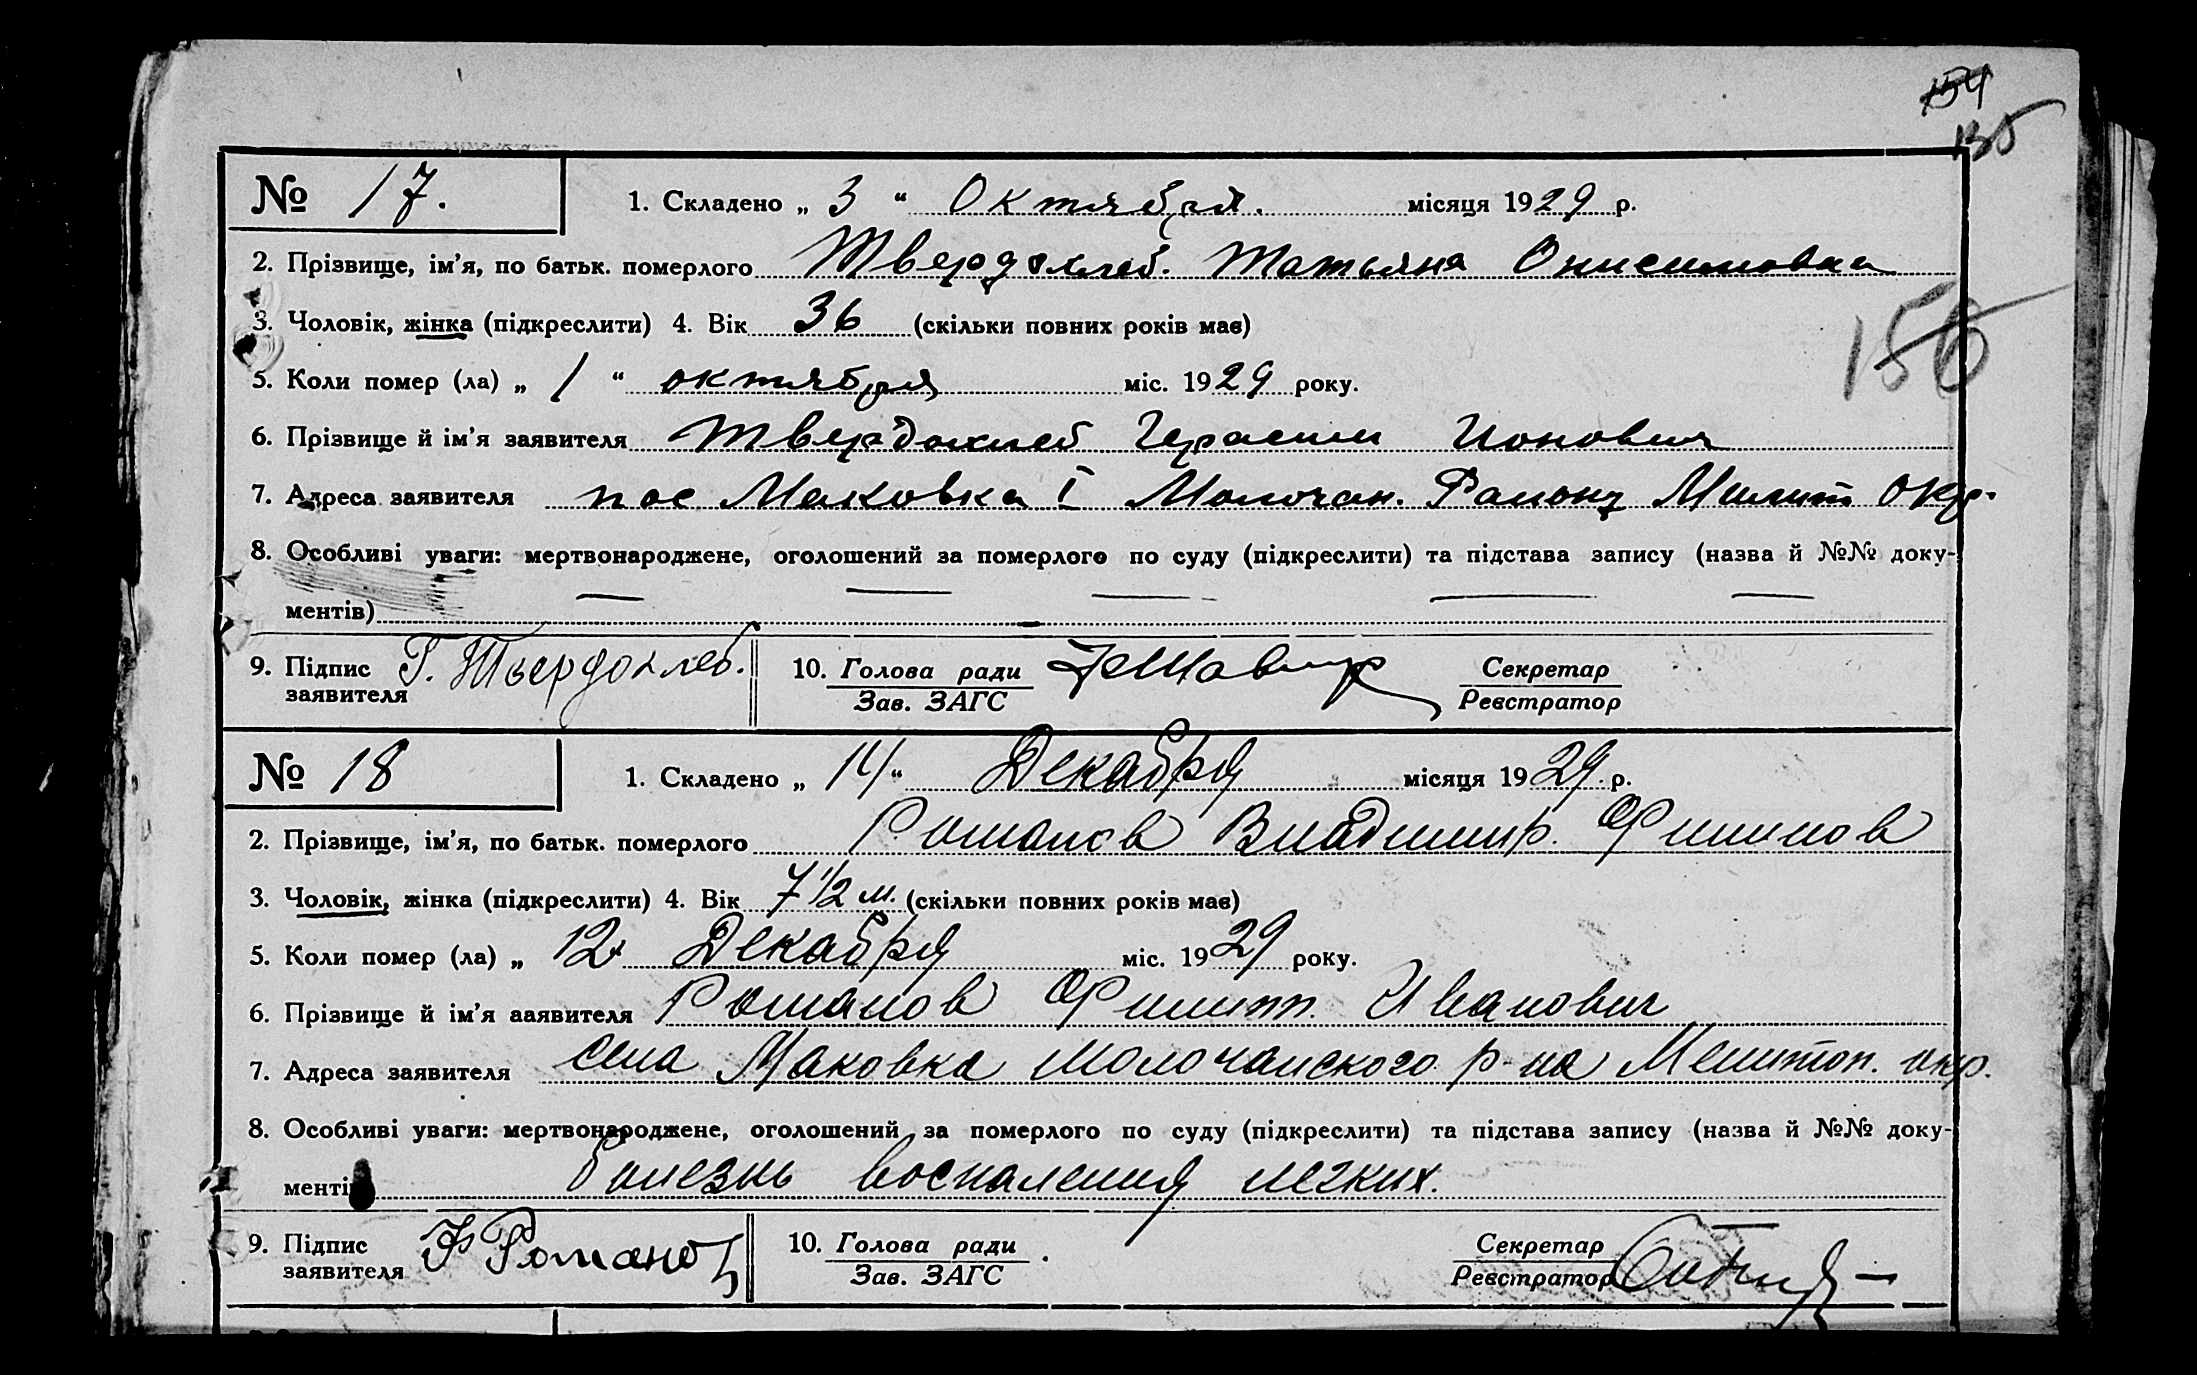 154
155
№ 17. 1. Складено „ 3 “ Октября. місяця 1929 р.
2. Прізвище, ім’я, по батьк. померлого Твердохлеб. Татьяна Онисимовна
156
3. Чоловік, жінка (підкреслити) 4. Вік 36 (скільки повних років має)
5. Коли помер (ла) „ 1 “ октября міс. 1929 року.
6. Прізвище й ім’я заявителя Твердохлеб Герасим Ионович
7. Адреса заявителя пос Маковка I Молочан. Району Мелит окр.
8. Особливі уваги: мертвонароджене, оголошений за померлого по суду (підкреслити) та підстава запису (назва й №№ доку-
ментів)
9. Підпис заявителя Г. Твердохлеб. 10. Голова ради Секретар
Зав. ЗАГС Реєстратор
№ 18 1. Складено „ 14 “ Декабря місяця 1929 р.
2. Прізвище, ім’я, по батьк. померлого Романов Владимир. Филипов
3. Чоловік, жінка (підкреслити) 4. Вік 7 1/2 м. (скільки повних років має)
5. Коли помер (ла) „ 12 Декабря міс. 1929 року.
6. Прізвище й ім’я ааявителя Романов Филипп. Иванович
7. Адреса заявителя села Маковка Молочанского р-на Мелитоп. окр.
8. Особливі уваги: мертвонароджене, оголошений за померлого по суду (підкреслити) та підстава запису (назва й №№ доку-
менті болезнь воспаления легких.
9. Підпис заявителя Ф Романов 10. Голова ради Секретар
Зав. ЗАГС Реєстратор